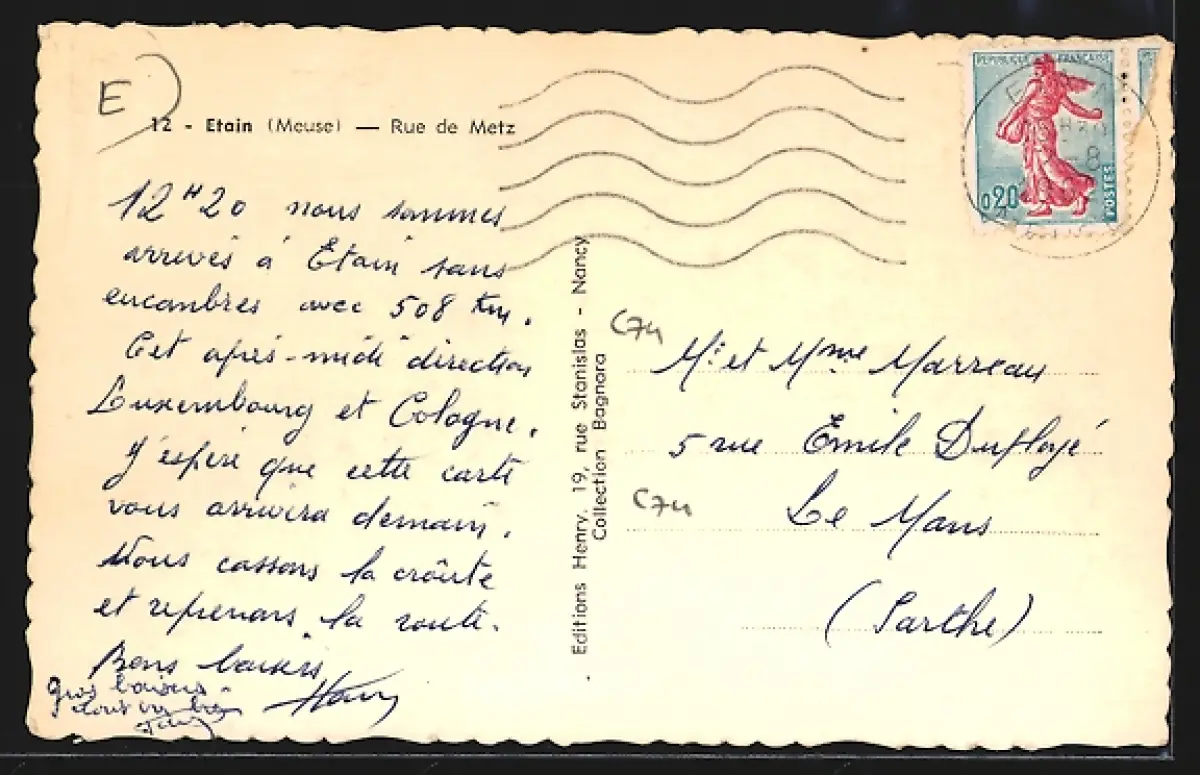 E
12 - Etain (Meuse) — Rue de Metz
12H20 nous sommes
arrivés à Etain sans
encombres avec 508 Km.
Cet après-midi direction
Luxembourg et Cologne.
J'espère que cette carte
vous arrivera demain.
Nous cassons la croûte
et reprenons la route.
Bons baisers
gros baisers
tout va bien
Editions Henry, 19, rue Stanislas - Nancy
Collection Bagnara
REPUBLIQUE FRANÇAISE
0,20
POSTES
C74
Mr et Mme Marreau
5 rue Emile Duployé
C74
Le Mans
(Sarthe)